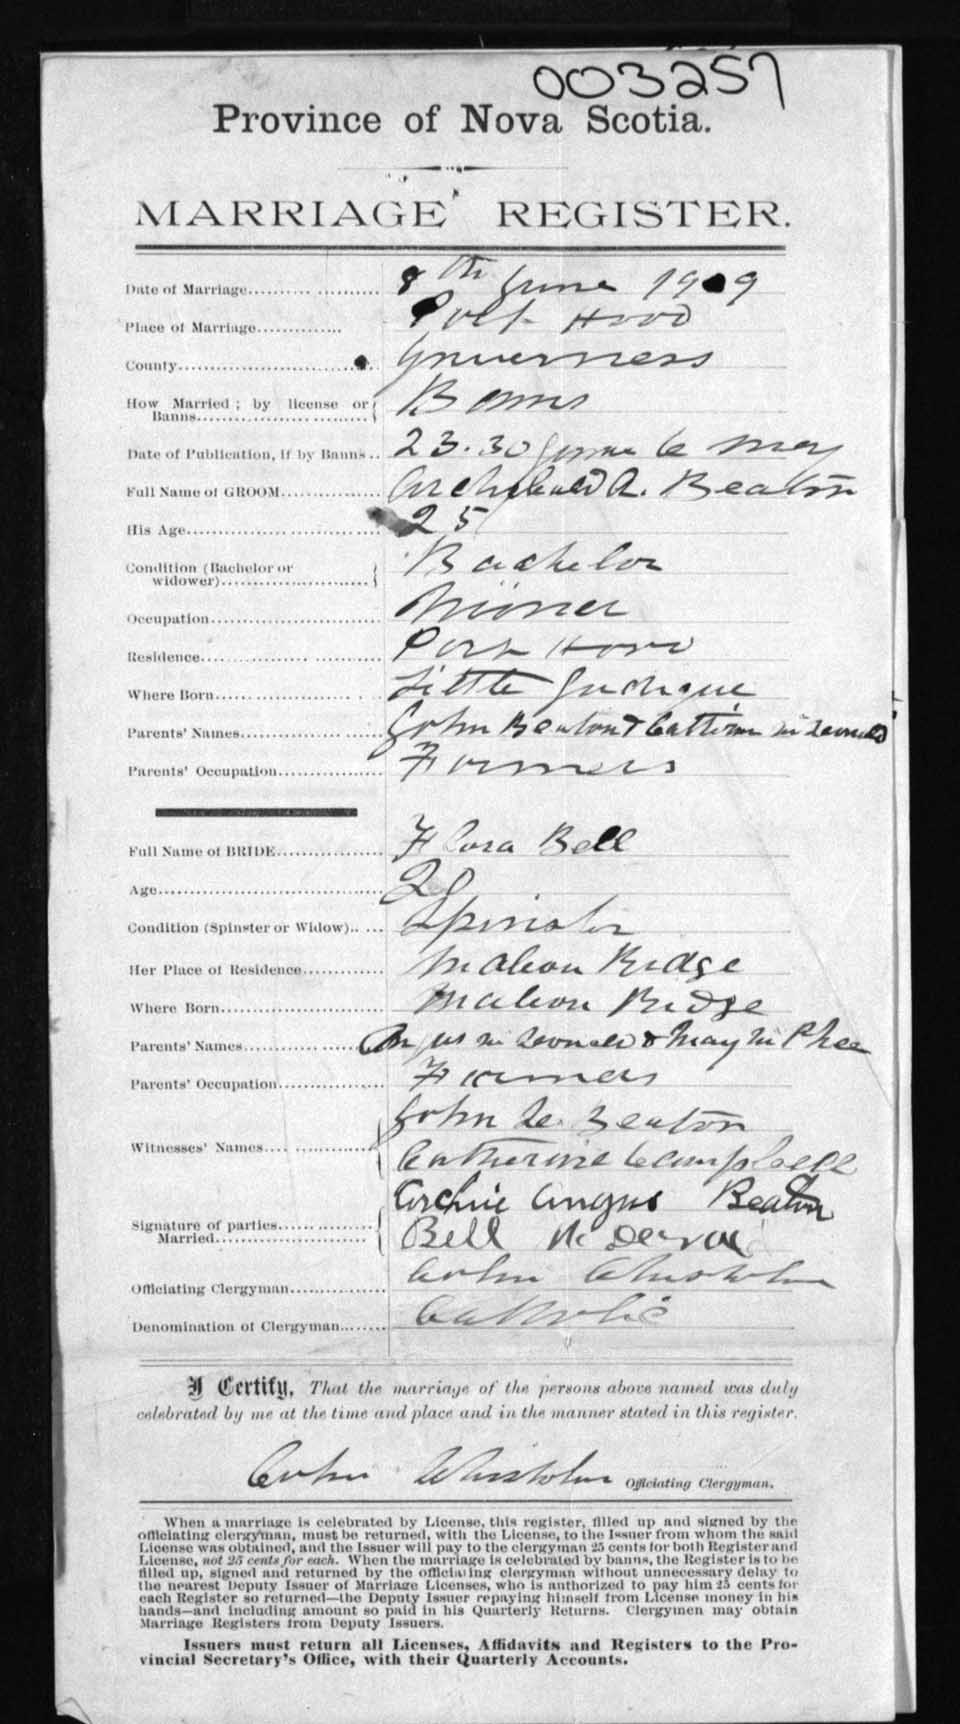 003257
Province of Nova Scotia.
MARRIAGE REGISTER.
Date of Marriage 8th June 1909
Place of Marriage Port Hood
County Inverness
How Married; by license or Banns Banns
Date of Publication, if by Banns 23.30 June 6 May
Full Name of GROOM Archibald A. Beaton
His Age 25
Condition (Bachelor or widower) Bachelor
Occupation Miner
Residence Port Hood
Where Born Little Judique
Parents' Names John Beaton & Catherine
Parents' Occupation Farmers
Full Name of BRIDE Flora Bell
Age
Condition (Spinster or Widow) Spinster
Her Place of Residence Mabou Ridge
Where Born Mabou Ridge
Parents' Names Angus Mc Donald & Mary Mc Phee
Parents' Occupation Farmers
Witnesses' Names John Beaton
Catherine Campbell
Signature of parties Married Archie Angus Beaton
Bell
Officiating Clergyman Colin Chisholm
Denomination of Clergyman Catholic
I Certify, That the marriage of the persons above named was duly
celebrated by me at the time and place and in the manner stated in this register.
Colin Chisholm Officiating Clergyman.
When a marriage is celebrated by License, this register, filled up and signed by the
officiating clergyman, must be returned, with the License, to the Issuer from whom the said
License was obtained, and the Issuer will pay to the clergyman 25 cents for both Register and
License, not 25 cents for each. When the marriage is celebrated by banns, the Register is to be
filled up, signed and returned by the officiating clergyman without unnecessary delay to
the nearest Deputy Issuer of Marriage Licenses, who is authorized to pay him 25 cents for
each Register so returned—the Deputy Issuer repaying himself from License money in his
hands—and including amount so paid in his Quarterly Returns. Clergymen may obtain
Marriage Registers from Deputy Issuers.
Issuers must return all Licenses, Affidavits and Registers to the Pro-
vincial Secretary's Office, with their Quarterly Accounts.